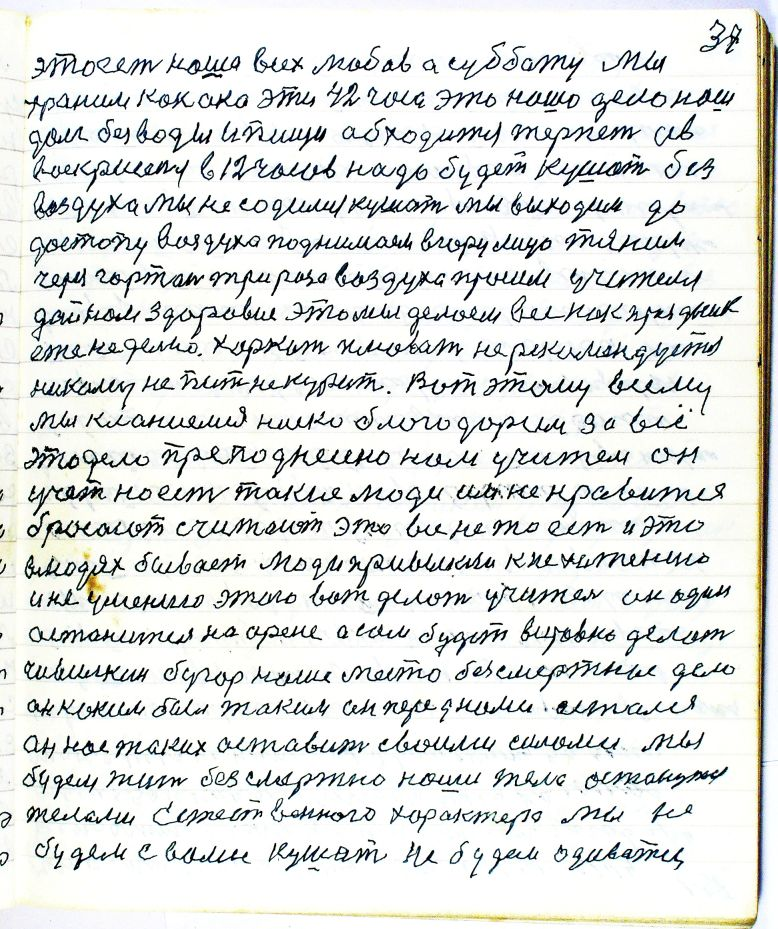 37
этогет наша всех любов а суббату мы
храним как ака эти 42 часа это нашо дело наш
долг без воды и пищи абходится терпет а в
воскрисеня в 12 часов надо будет кушат без
воздуха мы не содимся кушат мы выходим до
достопу воздуха поднимаем вгору лицо тяним
через гортан три роза воздуха просим учителя
дай нам здоровие это мы делаем все как праздник
еженеделно. харкат плюват не рекомендуется
никому не пит не курит. Вот этому всему
мы кланиемся ниско благодарим за всё
это дело преподнесино нам учителем он
учит нас ест такие люди им не нравится
бросают считают это все не то ест и это
в людях бывает люди привыкли к нехатению
и не умению этого вот делат учител он один
останится на арене а сам будет всёравно делат
чивилкин бугор наше место безсмертные дело
он каким был таким он перед нами остался
он нас таких оставит своими силами мы
будем жит безсмертно наши тела останутся
телами естественного характера мы не
будем с вами кушат не будем одиватся